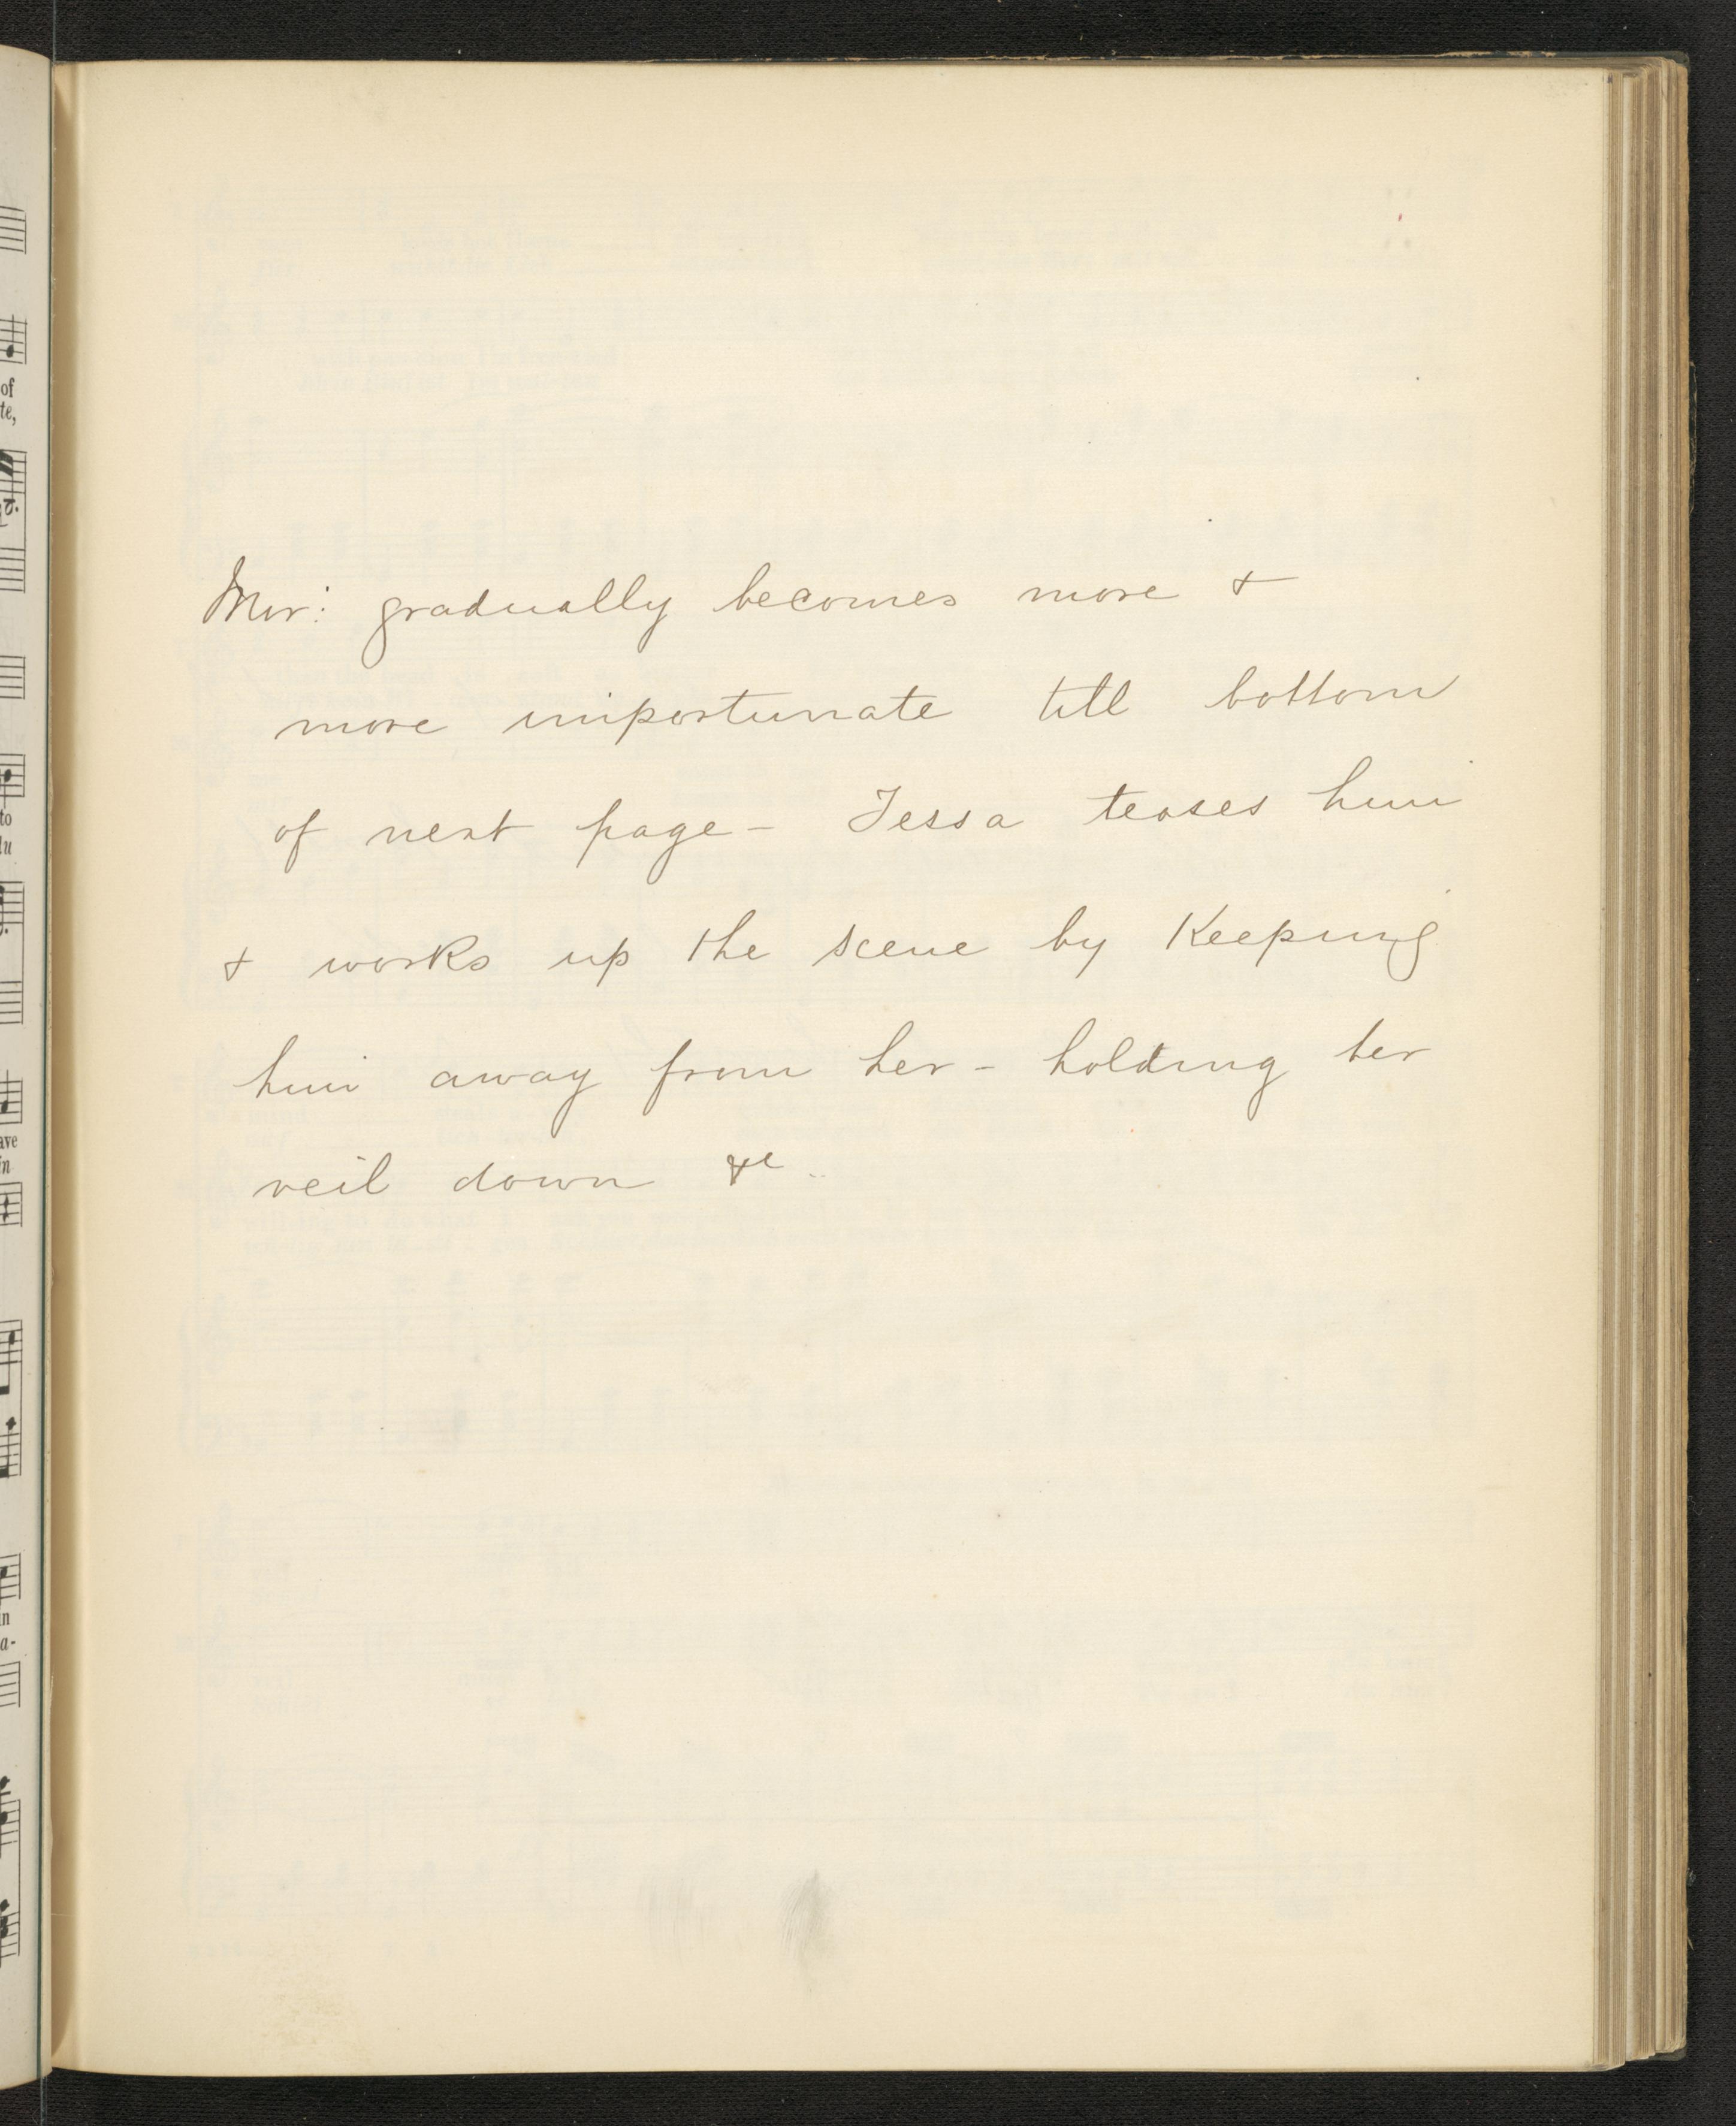 of
te,
to
lu
ave
in
in
a-
Mor: gradually becomes more &
more importunate till bottom
of next page - Tessa teases him
& works up the scene by Keeping
him away from her - holding her
veil down &c ..